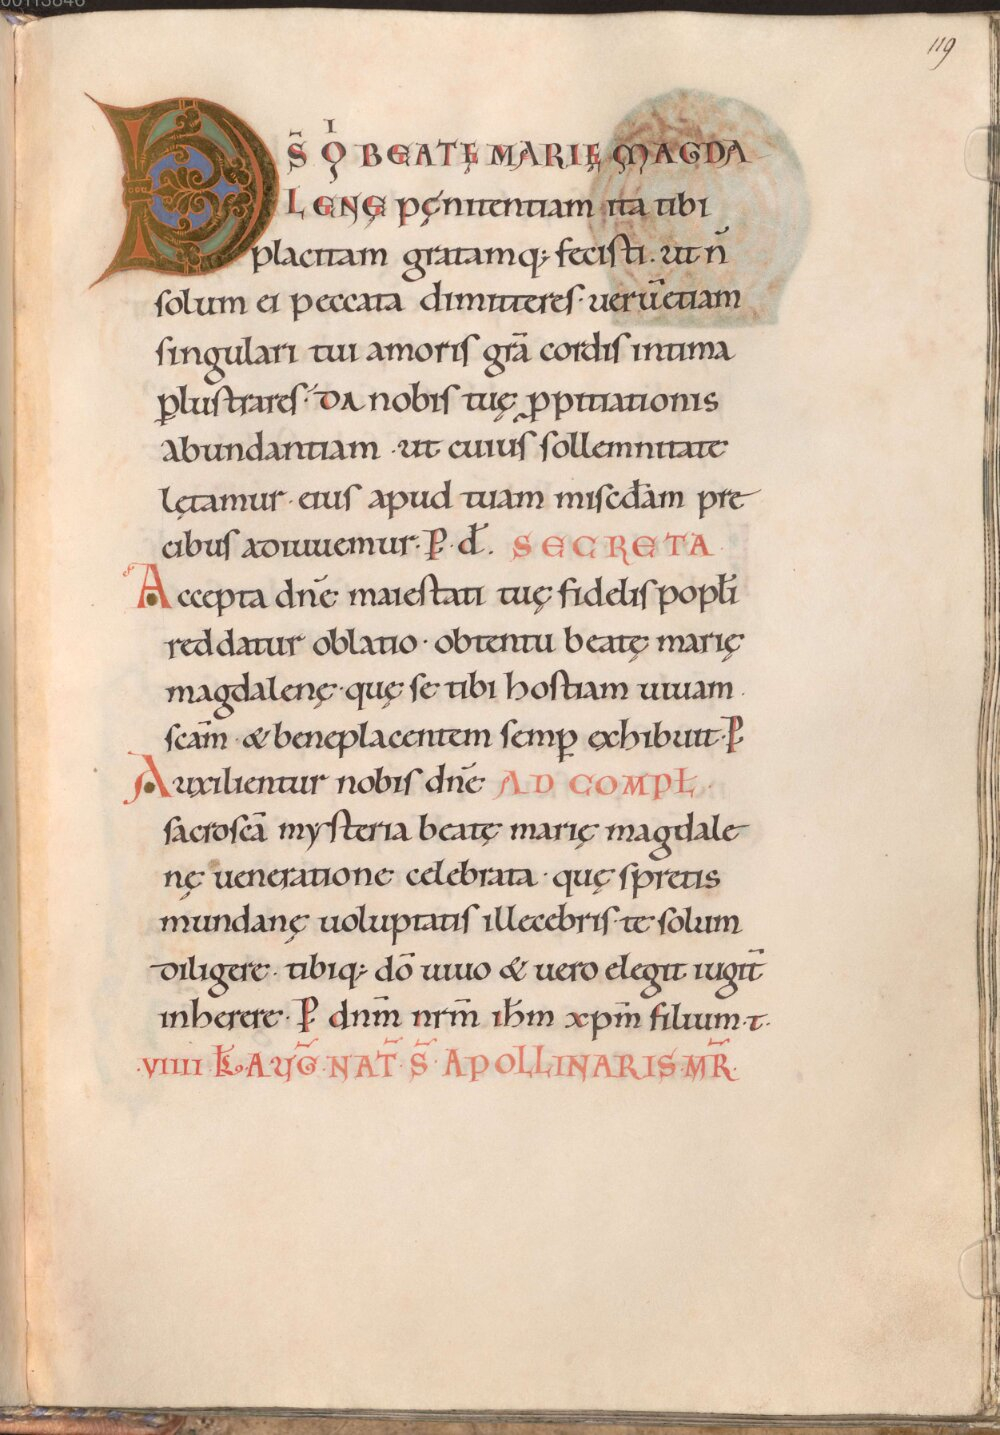 119
DS̄ Qͥ BEATĘ MARIĘ MAGDA
LENĘ pęnitentiam ita tibi
placitam gratamq; fecisti. ut n̄
solum ei peccata dimitteres· verūetiam
singulari tui amoris grā cordis intima
ꝑlustrares· DA nobis tuę ꝓpitiationis
abundantiam · ut cuius sollemnitate
lętamur · eius apud tuam misc̄dam pre
cibus adiuuemur· P. d̄. SECRETA
Accepta dn̄e maiestati tuę fidelis popłi
reddatur oblatio · obtentu beatę marię
magdalenę · quę se tibi hostiam uiuam
sc̄am · & beneplacentem semꝑ exhibuit · P
Auxilientur nobis dn̄e AD COMPŁ·
sacrosc̄ā mysteria beatę marię magdale
nę ueneratione celebrata · quę spretis
mundanę uoluptatis illecebris · te solum
diligere · tibiq; dō uiuo & uero elegit iugit̄
inherere · P dn̄m nr̄m ih̄m xp̄m filium · t·
·VIIII K̄Ł·AUḠ·NAT̄·S̄·APOLLINARIS·MR̄·